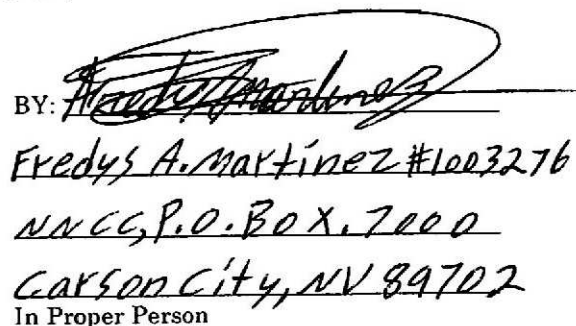 BY: Fredys Martinez
Fredys A. Martinez #1003276
NNCC, P.O. BOX. 7000
Carson City, NV 89702
In Proper Person